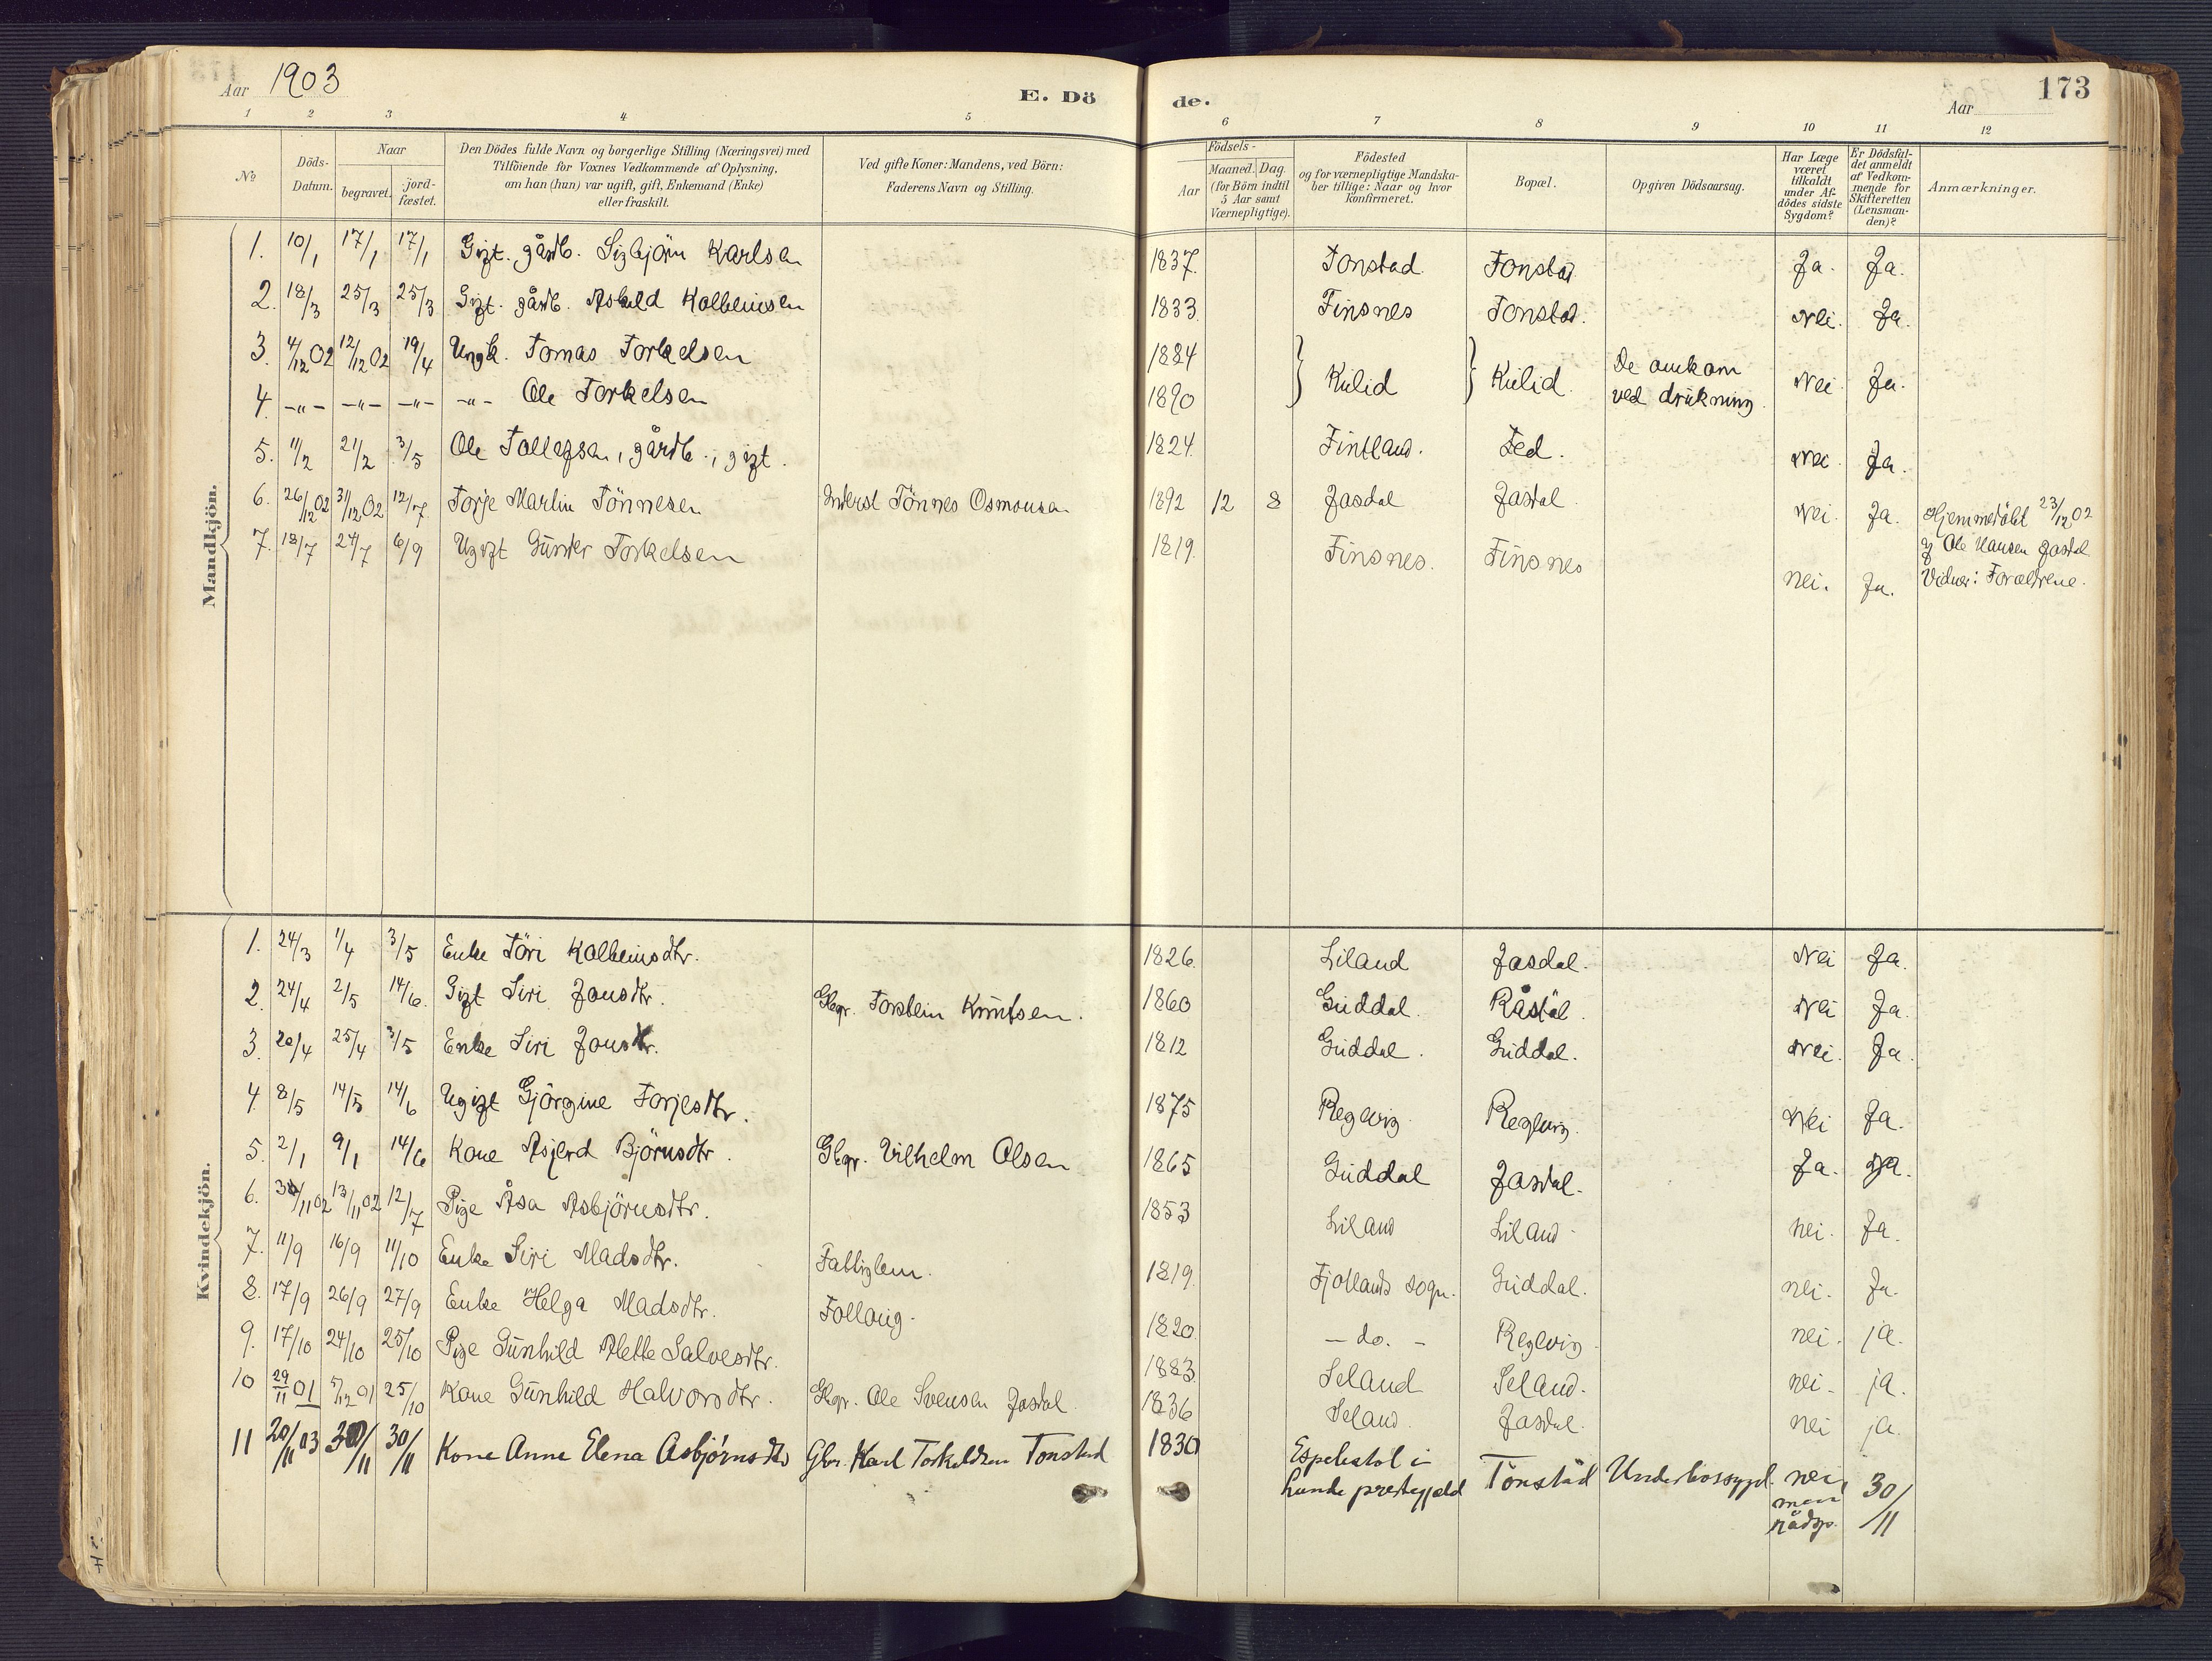 Aar 1903
E. Döde.
Aar
173
1 2 3 4 5 6 7 8 9 10 11 12
No
Döds-Datum.
Naar
begravet.
jordfæstet.
Den Dödes fulde Navn og borgerlige Stilling (Næringsvei) med
Tilföiende for Voxnes Vedkommende af Oplysning,
om han (hun) var ugift, gift, Enkemand (Enke)
eller fraskilt.
Ved gifte Koner: Mandens, ved Börn:
Faderens Navn og Stilling.
Födsels-
Aar
Maaned. Dag.
(for Börn indtil
5 Aar samt
Værnepligtige).
Födested
og for værnepligtige Mandska-
ber tillige: Naar og hvor
konfirmeret.
Bopæl.
Opgiven Dödsaarsag.
Har Læge
været
tilkaldt
under Af-
dödes sidste
Sygdom?
Er Dödsfal-
det anmeldt
af Vedkom-
mende for
Skifteretten
(Lensman-
den)?
Anmærkninger.
Mandkjön.
1. 10/1 17/1 17/1 Gift. gårdb. Sigbjörn Karlsen 1837. Tonstad. Tonstad Ja. Ja.
2. 18/3 25/3 25/3 Gift. gårdb. Askild Kolbeinsen 1833. Finsnes Tonstad. Nei. Ja.
3. 4/12 02 12/12 02 19/4 Ungk. Tomas Torkelsen 1884 Kulid Kulid. De omkom
4. -"- -"- -"- -"- Ole Torkelsen 1890 ved drukning. Nei Ja.
5. 11/2 21/2 3/5 Ole Tollefsen, gårdb., gift. 1824. Fintland. Fed. Nei Ja.
6. 26/12 02 31/12 02 12/7 Torje Martin Tönnesen Inderst Tönnes Osmonsen 1892 12 8 Josdal Josdal Nei. Ja. Hjemmedöbt 23/12 02
af Ole Hansen Josdal
Vidner: Forældrene.
7. 18/7 24/7 6/9 Ugift Gunder Torkelsen 1819. Finsnes. Finsnes nei. Ja.
Kvindekjön.
1. 24/3 1/4 3/5 Enke Töri Kolbeinsdtr. 1826. Liland Josdal. Nei Ja.
2. 24/4 2/5 14/6. Gift Siri Jonsdtr. Gbr. Torstein Knutsen. 1860 Guddal. Råstöl. Nei Ja.
3. 20/4 25/4 3/5 Enke Siri Jonsdtr. 1812 Guddal. Guddal. Nei. Ja.
4. 8/5 14/5 14/6 Ugift Gjörgine Torjesdtr. 1875 Regevig Regevig. Nei Ja.
5. 2/1 9/1 14/6 Kone Asjerd Björnsdtr. Gbr. Vilhelm Olsen 1865 Guddal Josdal. Ja. Ja.
6. /11 02 13/11 02 12/7 Pige Åsa Asbjörnsdtr. 1853 Liland Liland. nei. Ja.
7. 11/9 16/9 11/10 Enke Siri Madsdtr. Fattiglem. 1819. Fjotlands sogn. Guddal. nei. Ja.
8. 17/9 26/9 27/9 Enke Helga Madsdtr. Follaug. 1820 - do. - Regevig nei. ja.
9. 17/10 24/10 25/10 Pige Gunhild Alette Salvesdtr. 1883. Seland Seland. nei. ja.
10 29/11 01 5/12 01 25/10 Kone Gunhild Halvorsdtr. Gbr. Ole Svensen Josdal. 1836 Seland. Josdal. nei ja.
11 20/11 03 30/11 30/11 Kone Anne Elena Asbjørnsdtr Gbr. Karl Torkeldsen Tonstad 1830 Espelistöl i
Lunde prestegjeld Tonstad Underlivssygd. nei,
men
rådsp. 30/11